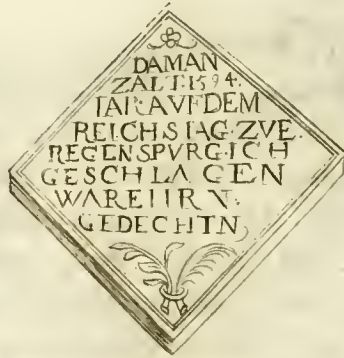 DAMAN
ZALT·1594·
IAR·AVF DEM
REICHSTAG·ZVE·
REGENSPVRG·ICH
GESCHLAGEN
WARE
GEDECHTN